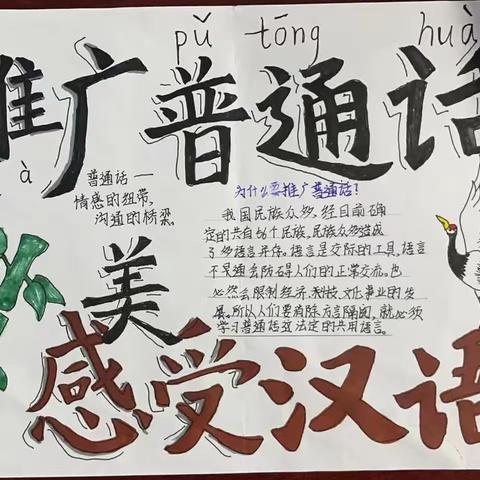 pǔ tōng huà
推广普通话
à
普通话——
情感的纽带,
沟通的桥梁。
为什么要推广普通话?
我国民族众多,经目前确
定的共有56个民族,民族众多造成
了多语言并存。语言是交际的工具,语言
不灵通会防碍人们的正常交流。也
必然会限制经济、科技、文化事业的发
展。所以人们要消除方言隔阂,就必须
学习普通话这法定的共用语言。
美
感受汉语